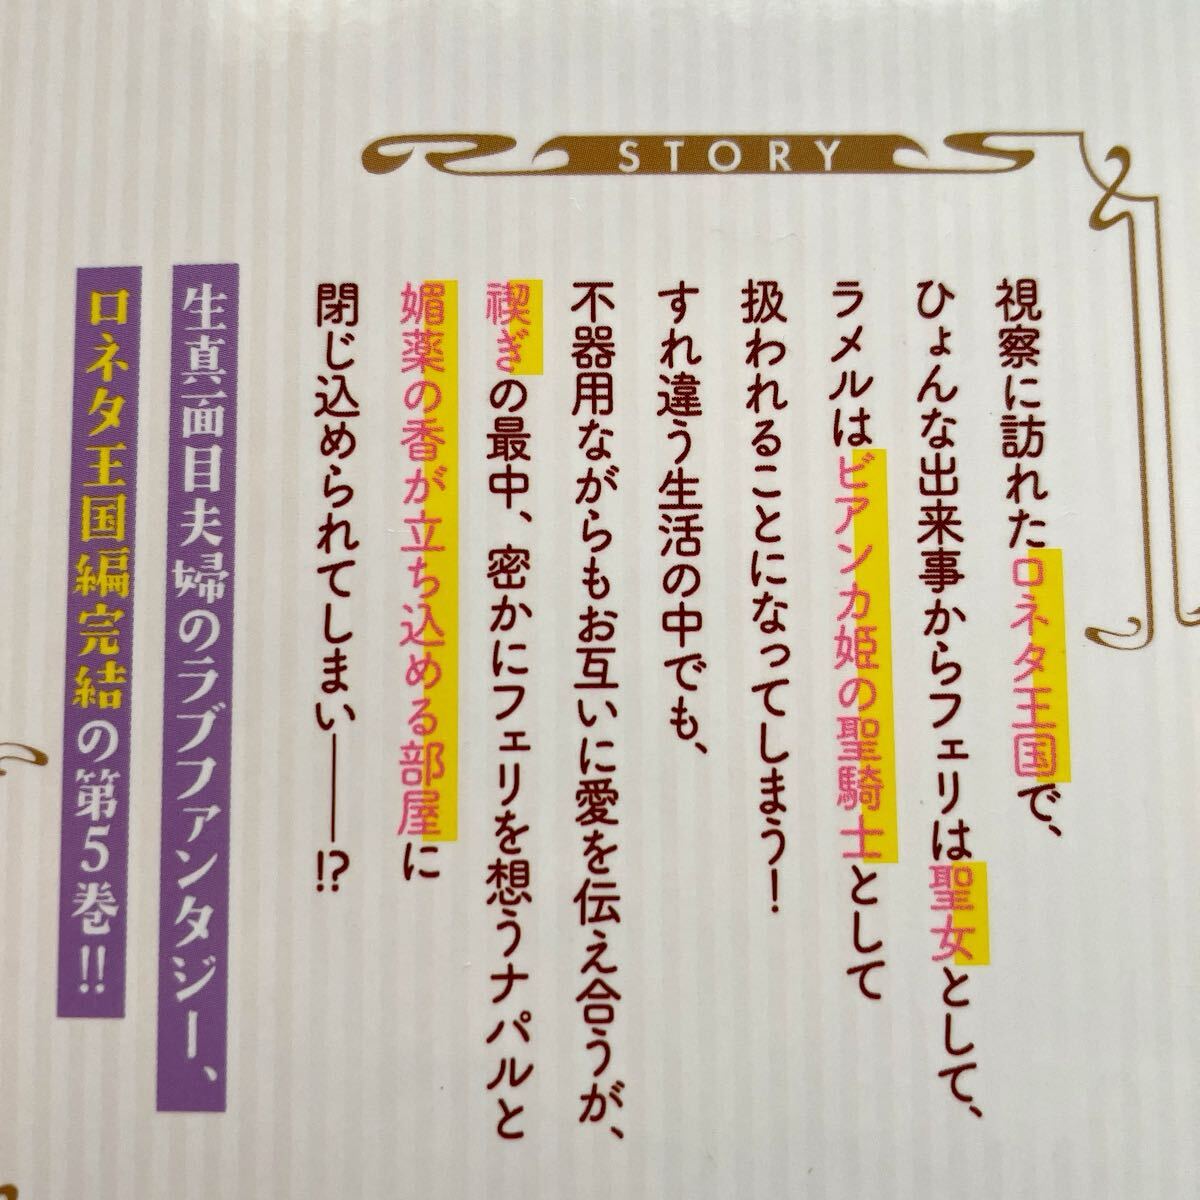 STORY
視察に訪れたロネタ王国で、
ひょんな出来事からフェリは聖女として、
ラメルはビアンカ姫の聖騎士として
扱われることになってしまう！
すれ違う生活の中でも、
不器用ながらもお互いに愛を伝え合うが、
禊ぎの最中、密かにフェリを想うナパルと
媚薬の香が立ち込める部屋に
閉じ込められてしまい――!?
生真面目夫婦のラブファンタジー、
ロネタ王国編完結の第5巻!!